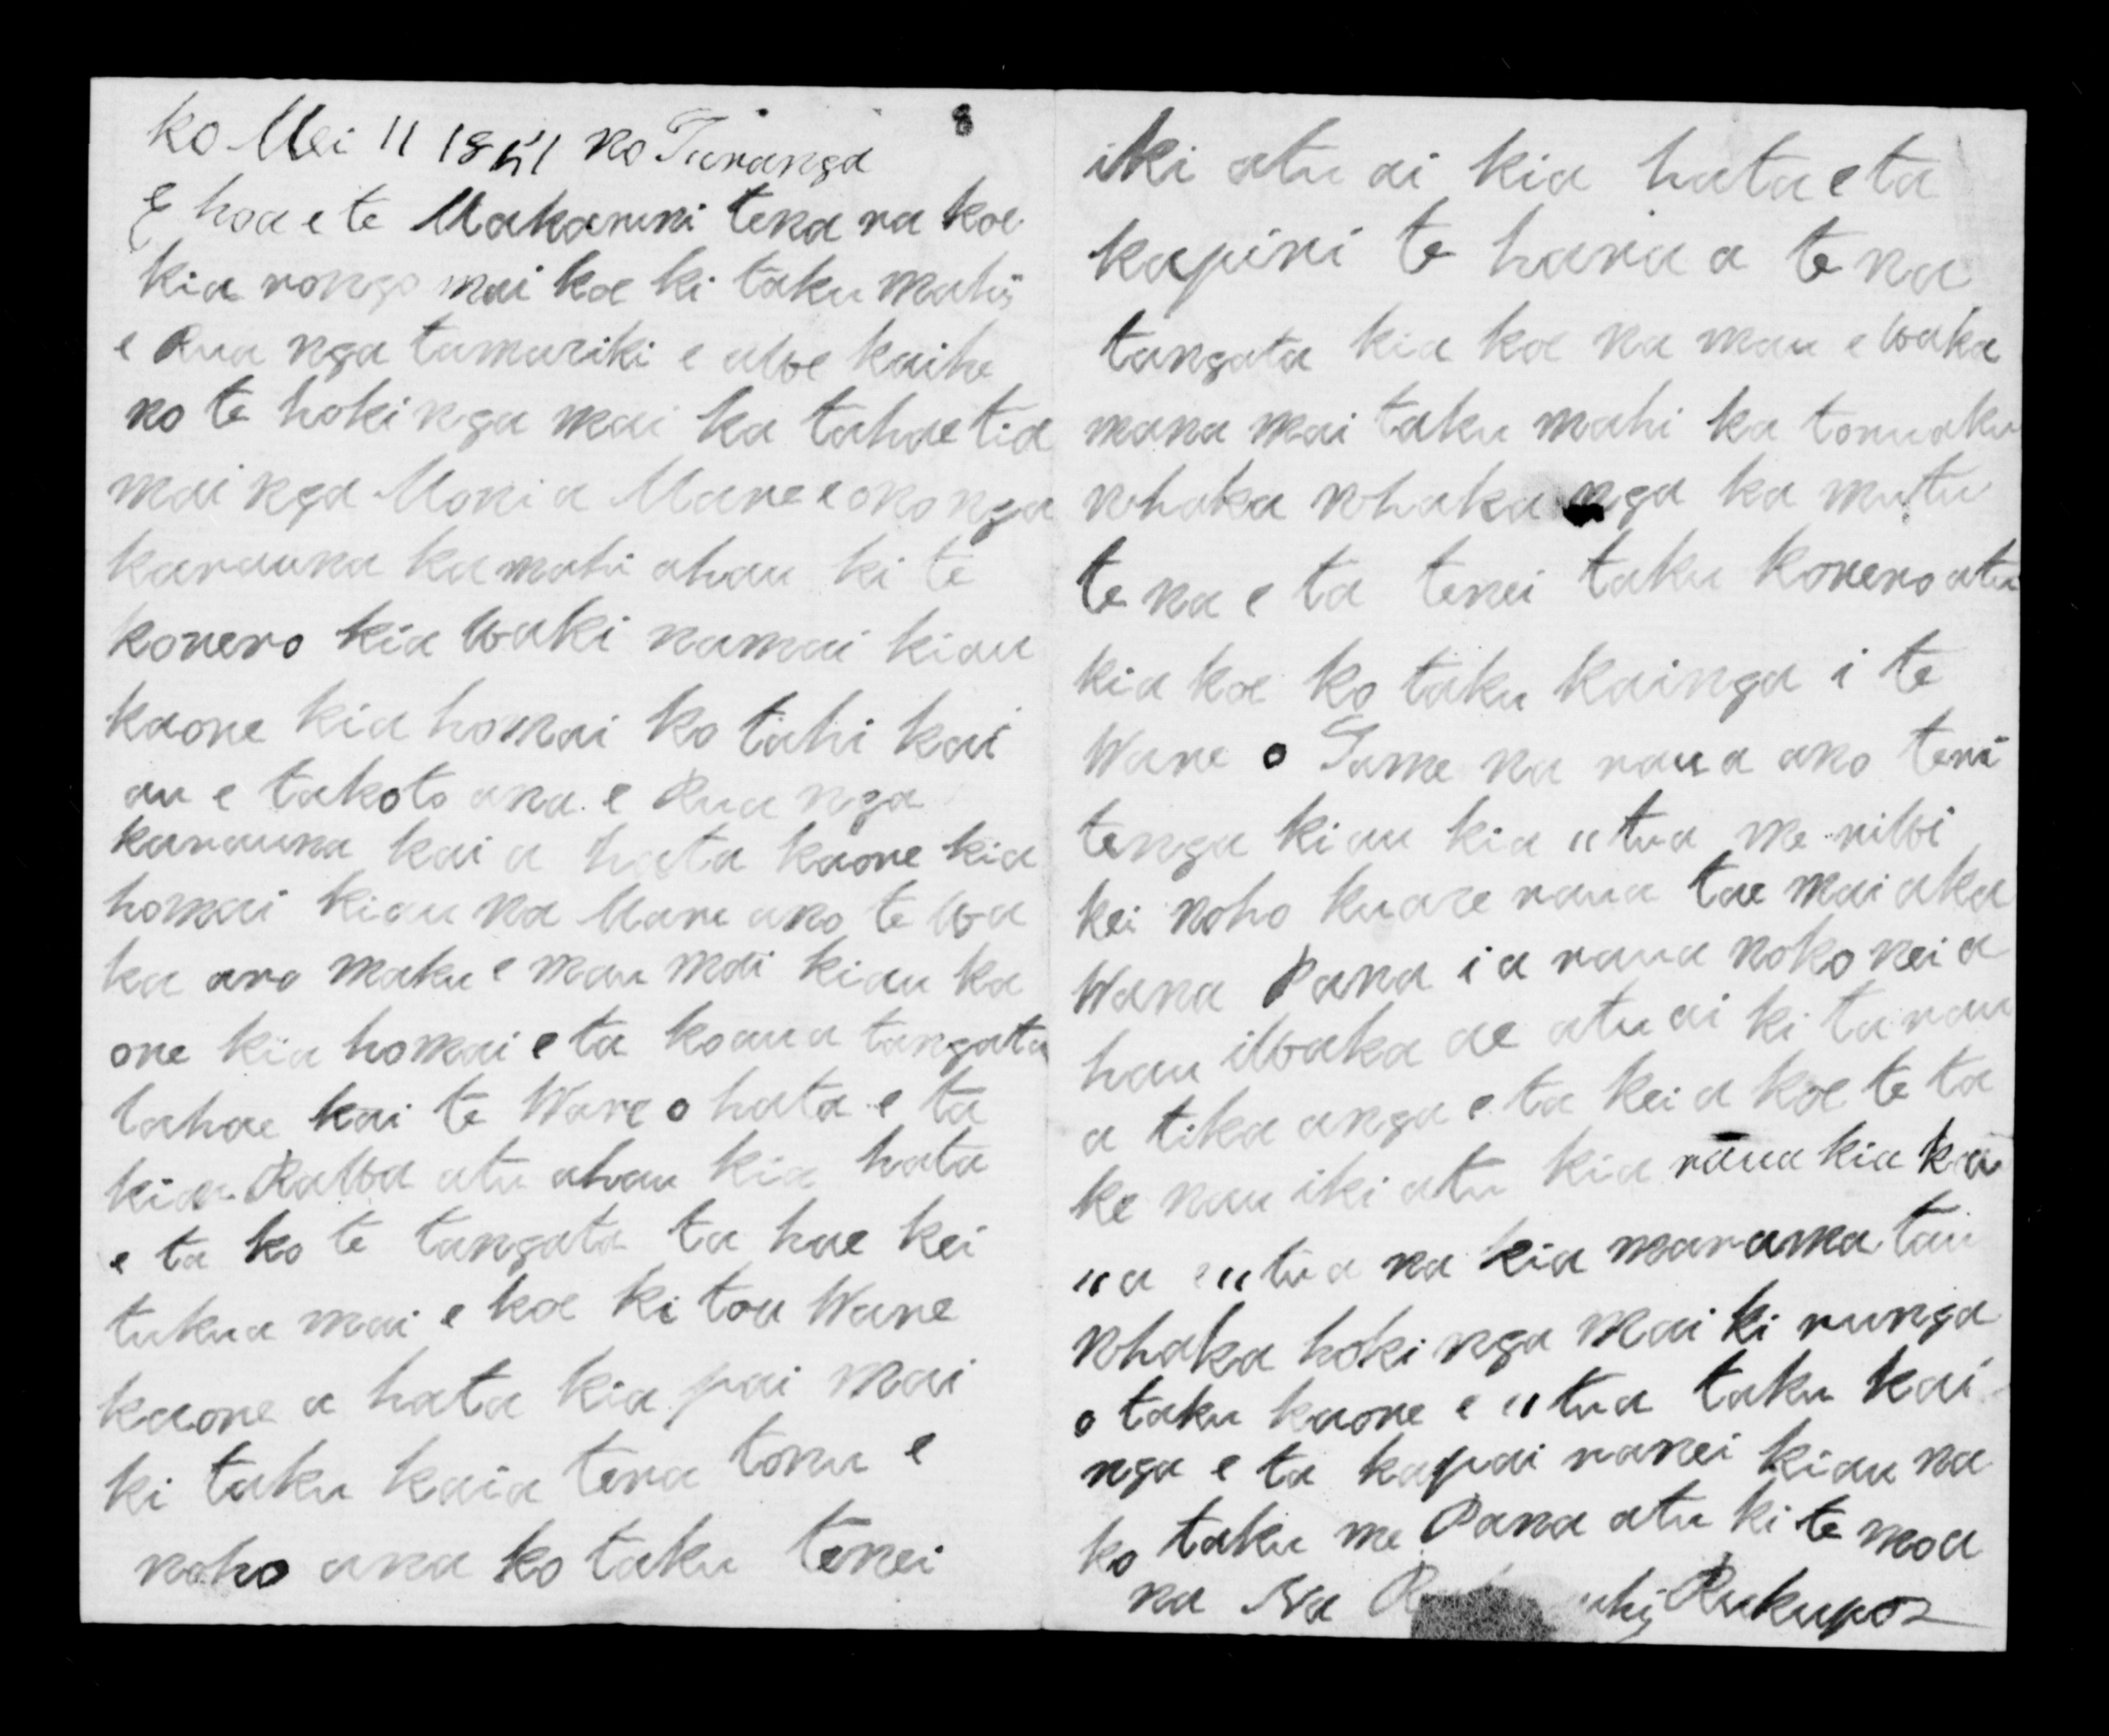 ko Mei 11 1851 no Turanga
8
E hoa e te Makarini tena ra koe
kia rongo mai koe ki taku mahi
e Rua nga tamariki e awe kaihe
no te hoki nga mai ka tahae tia
mai nga Moni a Mare e ono nga
karauna ka mahi ahau ki te
korero kia waki namai kiau
kaore kia homai ko tahi kai
au e takoto ana e Rua nga
karauna kai a hata kaore kia
homai kiau na Mare ano te wa
ka aro maku e mau mai kiau ka
ore kia homai e ta ko aua tangata
tahae kai te Ware o hata e ta
kia Rawa atu ahau kia hata
e ta ko te tangata ta hae kei
tukua mai e koe ki tou Ware
kaore a hata kia pai mai
ki taku kaia tera tonu e
noho ana ko taku tenei
iki atu ai kia hata e ta
kapiri te hara a te na
tangata kia koe na mau e waka
mana mai taku mahi ka toru aku
whaka whaka nga ka mutu
te na e ta tenei taku korero atu
kia koe ko taku kainga i te
Ware o Tame na raua ano teri
tenga kiau kia utua me riwi
kei noho kuare raua tae mai aka
Wana Pana i a raua noko nei a
hau iwaka ae atu ai ki ta rau
a tika anga e ta kei a koe te ta
ke nau iki atu kia raua kia ka
ua e utua na kia marama tau
whaka hoki nga mai ki runga
o taku kaore e utua taku kai
nga e ta kapai ranei kiau na
ko taku me Pana atu ki te moa
na Na Rukupo